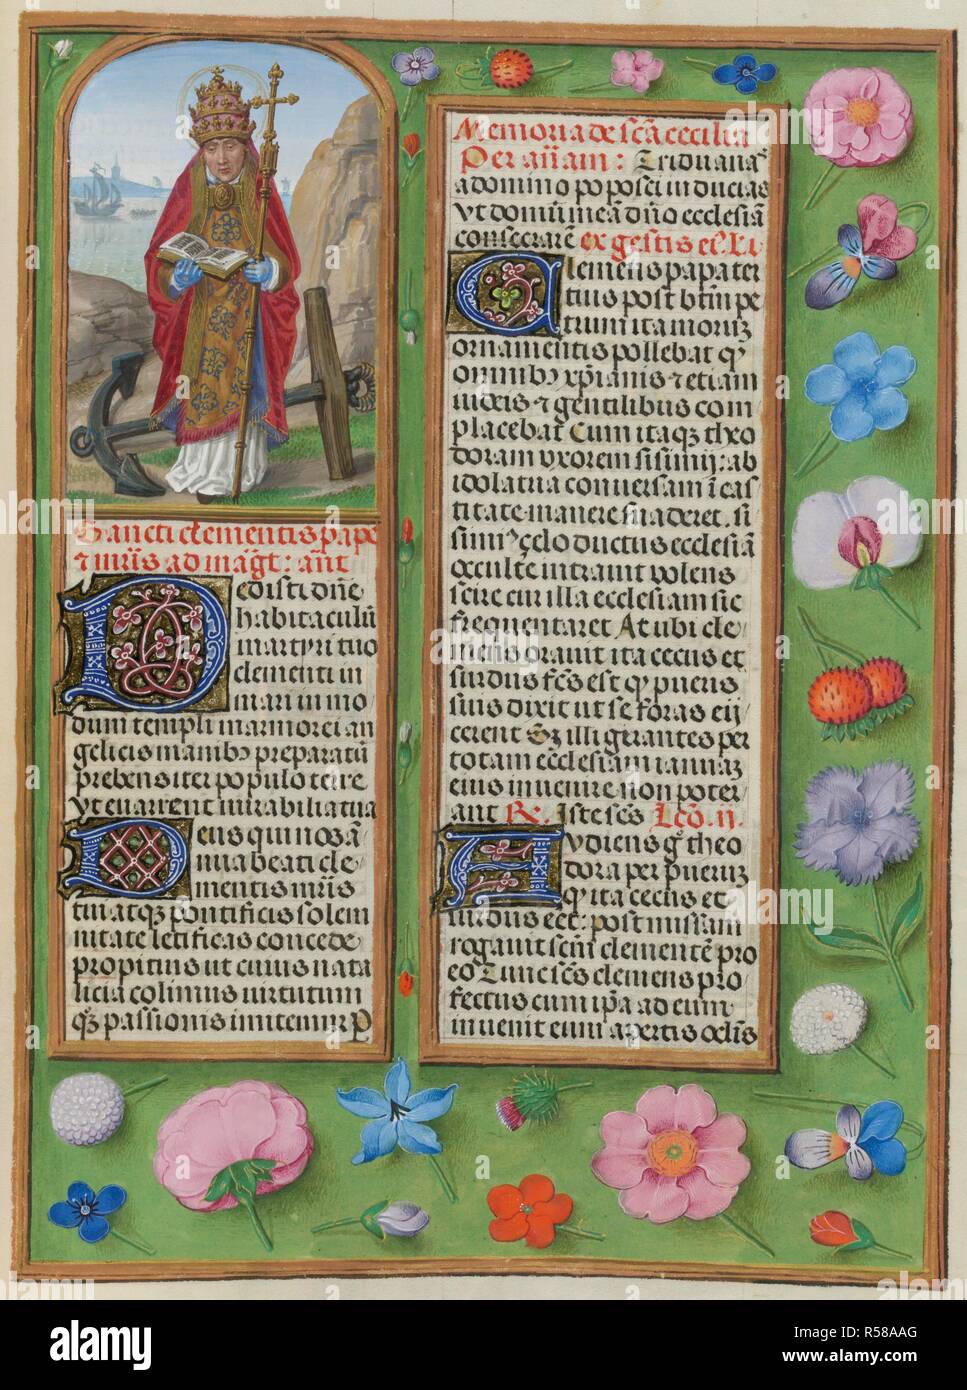 Sancti clementis pape
⁊ mr̄is ad mag̃t: añt
Dedisti dñe
habitaculũ
martyri tuo
clementi in
mari in mo
dum templi marmorei an
gelicis manib₃ preparatũ
prebens iter populo terre
vt enarrent mirabilia tua
Deus qui nos ãn
nua beati cle
mentis mr̃is
tui atq₃ pontificis solem
nitate letificas concede
propitius ut cuius nata
licia colimus uirtutum
q₃ passionis imitemur P
Memoria de sc̃a cecilia
Per aũam: Triduanas
a domino poposci inducias
vt domũ meã dño ecclesiã
consecrarẽ ex gestis ei⁹ L. i
Clemens papa ter
tius post btm̃ pe
trum ita morum
ornamentis pollebat q̃
omnib₃ xp̃ianis ⁊ etiam
iudeis ⁊ gentilibus com
placebat Cum itaq₃ theo
doram vxorem sisinnij: ab
idolatria conuersam ĩ cas
titate manere suaderet. si
sinni⁹ zelo ductus ecclesiã
occulte intrauit volens
scire cur illa ecclesiam sic
frequentaret At ubi cle
mens orauit ita cecus et
surdus fc̃s est q̃ pueris
suis dixit ut se foras eij
cerent S₃ illi girantes per
totam ecclesiam ianuaʒ
eius inuenire non poter
ant R̃. Iste sc̃s Lc̃o. ii.
Audiens g̃ theo
dora per puerum
q̃ ita cecus et
surdus eet: post missam
rogauit sc̃m clementẽ pro
eo Tunc sc̃s clemens pro
fectus cum ip̃a ad eum
inuenit eum apertis oclĩs
alamy
alamy
Image ID: R58AAG
www.alamy.com